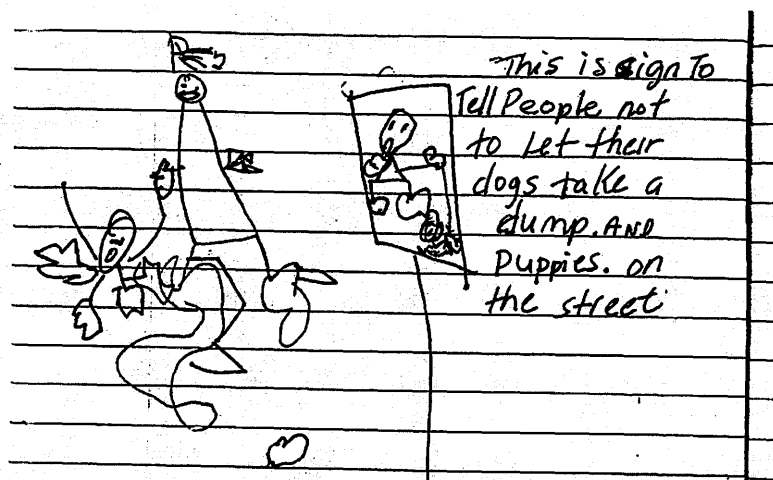 This is sign To
Tell People not
to Let their
dogs take a
dump. AND
Puppies. on
the street